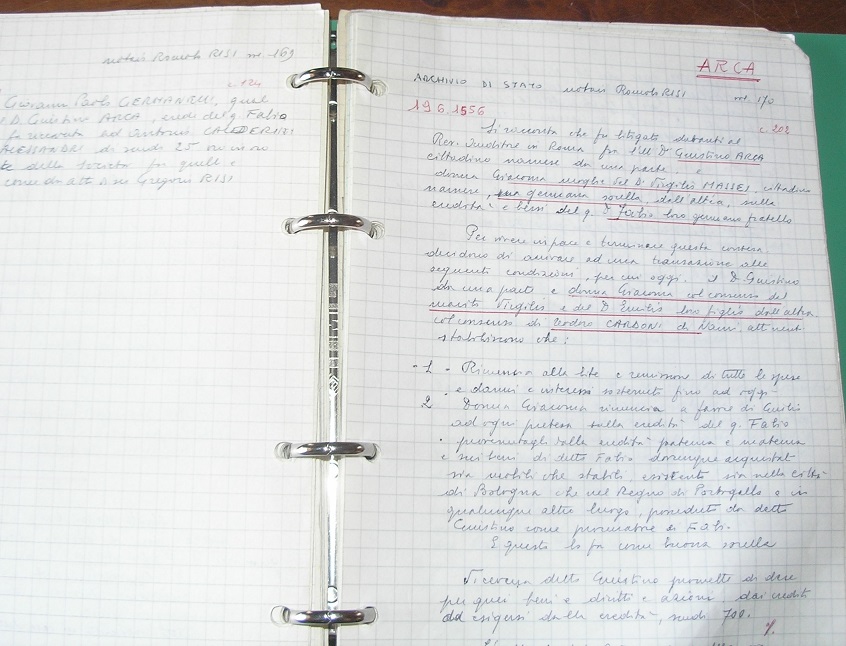 notaio Romolo RISI vol. 169
c. 124
Giovanni Paolo GERMANELLI, quel
D. Giustino ARCA, erede del q. Fabio
ad Antonio CALDERINI
ALESSANDRI di scudi 25
della società fra quelli e
Gregorio RISI
ARCA
ARCHIVIO DI STATO notaio Romolo RISI vol. 170
19 6 1556
c. 202
Si racconta che fu litigato davanti al
Rev. Auditore in Roma fra l'ill D. Giustino ARCA
cittadino narnese da una parte e
donna Giacoma moglie del D. Virgilio MASSEI, cittadino
narnese, sua germana sorella, dall'altra, sulla
eredità e beni del q. D. Fabio loro germano fratello
Per vivere in pace e terminare questa contesa
decidono di arrivare ad una transazione alle
seguenti condizioni, per cui oggi. il D. Giustino
da una parte e donna Giacoma col consenso del
marito Virgilio e del D. Emilio loro figlio dall'altra
col consenso di Teodoro CARDONI di Narni,
stabiliscono che:
- 1 - Rinuncia alla lite e remissione di tutte le spese
e danni e interessi sostenuti fino ad oggi -
2 Donna Giacoma rinuncia a favore di
ad ogni pretesa sulla eredità del q. Fabio
e provenutagli dalla eredità paterna e materna
e sui beni di detto Fabio dovunque acquistati
sia mobili che stabili, esistenti sia nella città
di Bologna che nel Regno di Portogallo o in
qualunque altro luogo, posseduto da detto
Giustino come procuratore di Fabio.
E questo lo fa come buona sorella
Viceversa detto Giustino promette di dare
per quei beni e diritti e azioni, dai crediti
ad esigersi dalla eredità, scudi 700.
%